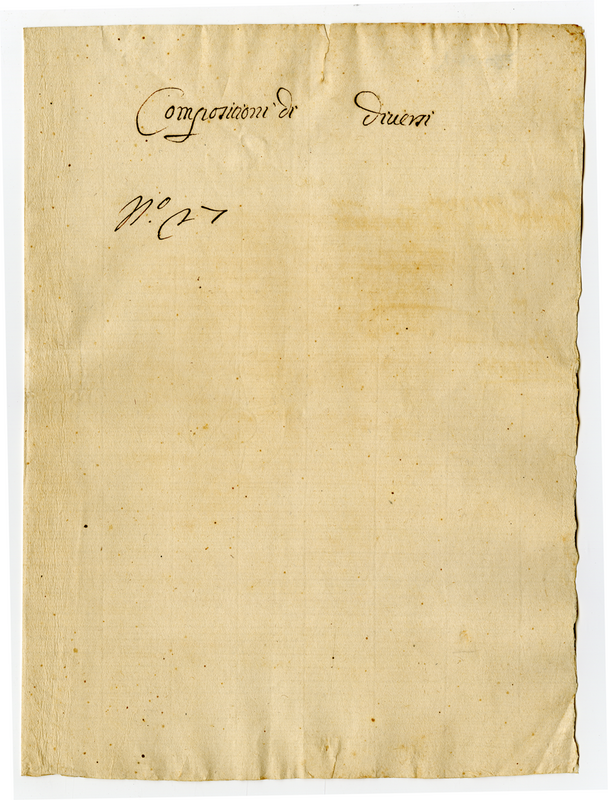 Composicioni di diuersi
N.o 27